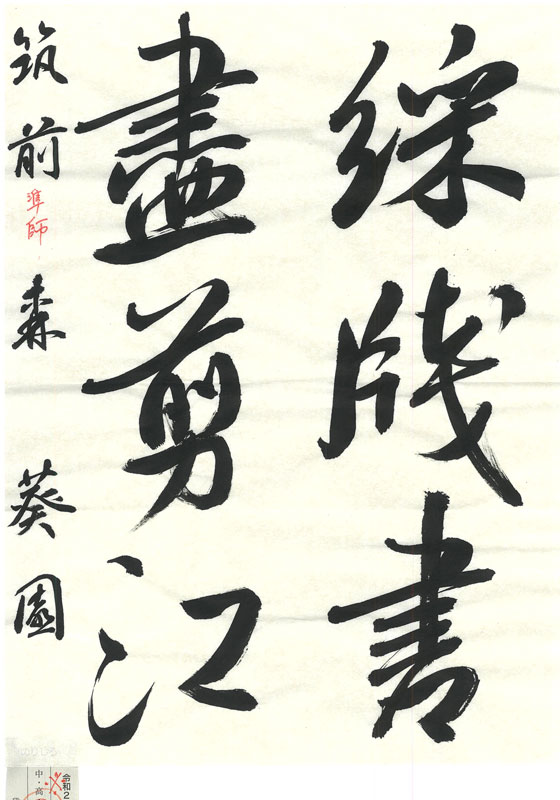 綵牋書
盡剪江
筑前 準師 森 葵園
令和2
中・高